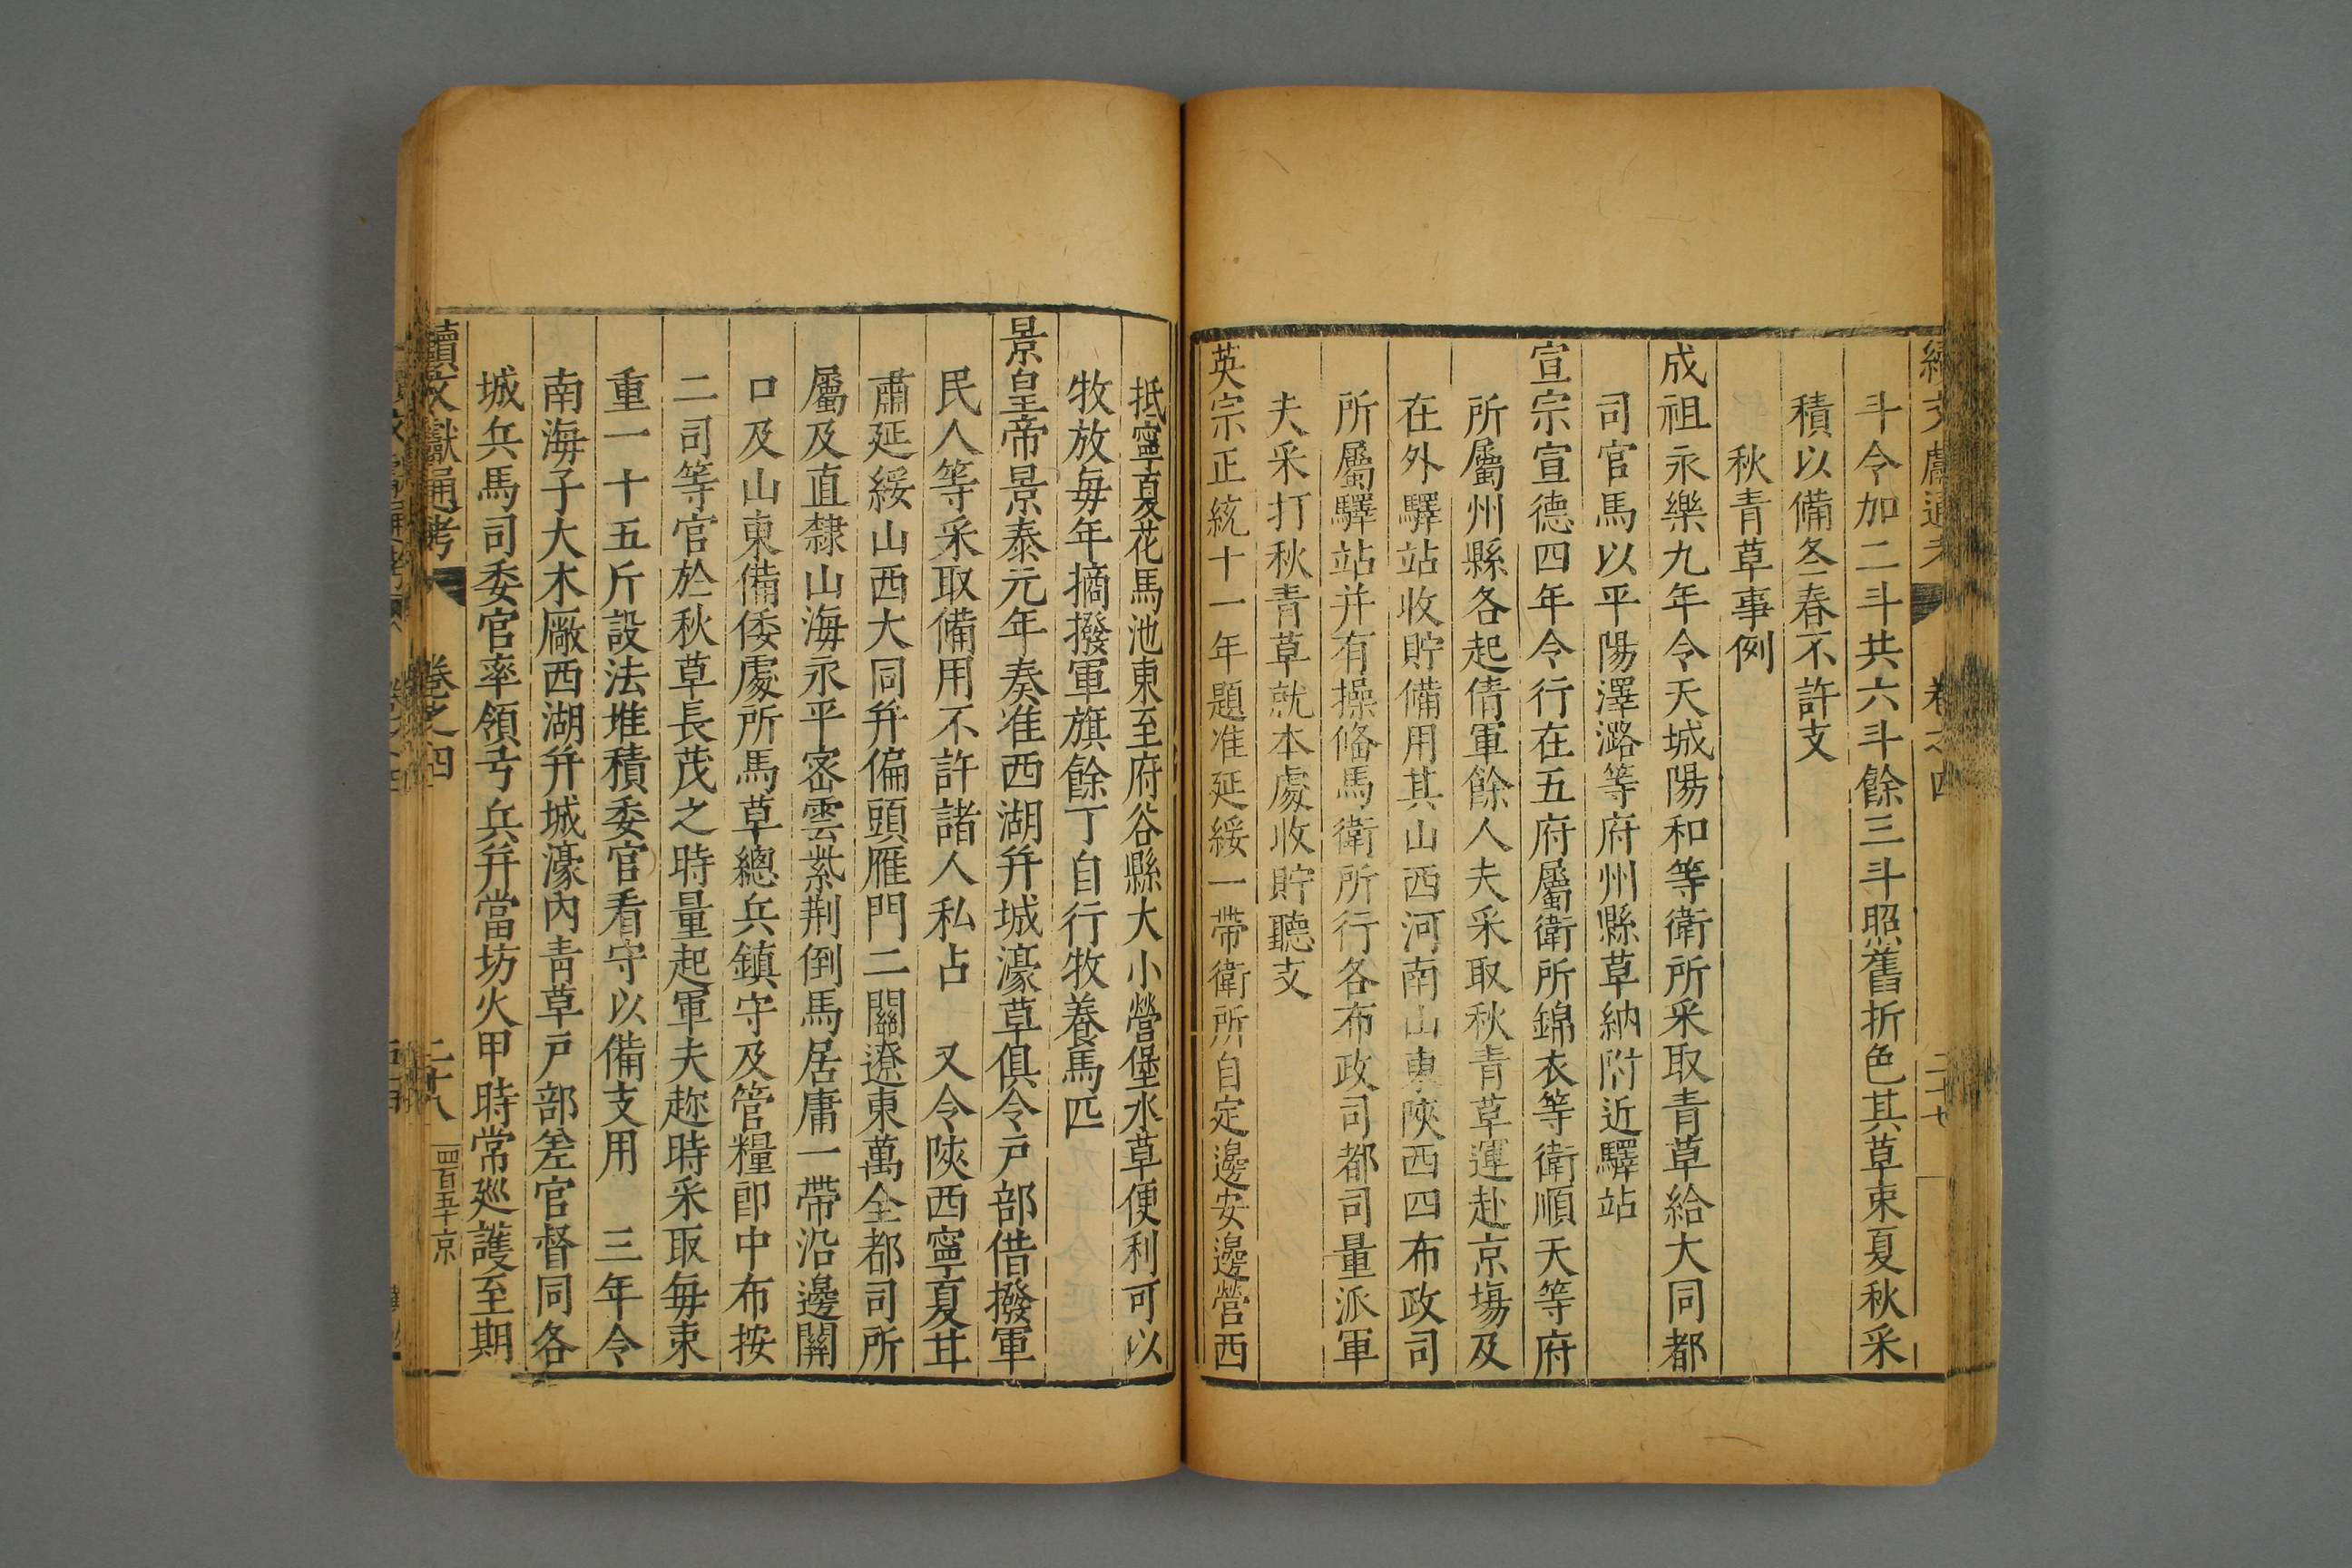 續文獻通考 卷之四 二十七
斗令加二斗共六斗餘三斗照舊折色其草束夏秋采
積以備冬春不許支
秋青草事例
成祖永樂九年令天城陽和等衛所采取青草給大同都
司官馬以平陽澤潞等府州縣草納附近驛站
宣宗宣德四年令行在五府屬衛所錦衣等衛順天等府
所屬州縣各起倩軍餘人夫采取秋青草運赴京塲及
在外驛站收貯備用其山西河南山東陝西四布政司
所屬驛站并有操備馬衛所行各布政司都司量派軍
夫采打秋青草就本處收貯聽支
英宗正統十一年題准延綏一帶衛所自定邊安邊營西
抵寧夏花馬池東至府谷縣大小營堡水草便利可以
牧放毎年摘撥軍旗餘丁自行牧養馬匹
景皇帝景泰元年奏准西湖并城濠草俱令戸部借撥軍
民人等采取備用不許諸人私占 又令陝西寧夏甘
肅延綏山西大同并偏頭雁門二關遼東萬全都司所
屬及直隸山海永平宻雲紫荆倒馬居庸一帶沿邊關
口及山東備倭處所馬草總兵鎮守及管糧郎中布按
二司等官於秋草長茂之時量起軍夫趂時采取毎束
重一十五斤設法堆積委官看守以備支用 三年令
南海子大木廠西湖并城濠內靑草戸部差官督同各
城兵馬司委官率領弓兵并當坊火甲時常廵護至期
續文獻通考 卷之四 二十八 四百五十京